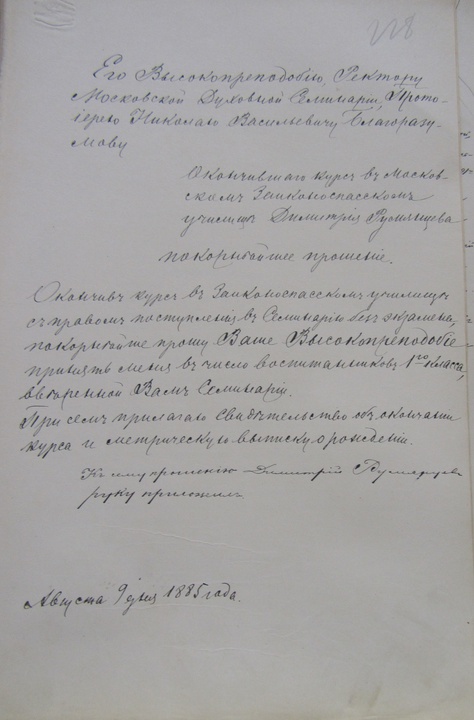 228
Его Высокопреподобію, Ректору
Московской Духовной Семинаріи, Прото-
іерею Николаю Васильевичу Благоразу-
мову
Окончившаго курсъ въ Москов-
скомъ Заиконоспасскомъ
училищѣ Димитрія Румянцева
покорнѣйшее прошеніе.
Окончивъ курсъ въ Заиконоспасскомъ училищѣ
съ правомъ поступленія въ Семинарію безъ экзамена,
покорнѣйше прошу Ваше Высокопреподобіе
принять меня въ число воспитанниковъ 1го класса,
ввѣренной Вамъ Семинаріи.
При семъ прилагаю свидѣтельство объ окончаніи
курса и метрическую выписку о рожденіи.
Къ сему прошенію Димитрій Румянцевъ
руку приложилъ
Августа 9 дня 1885 года.